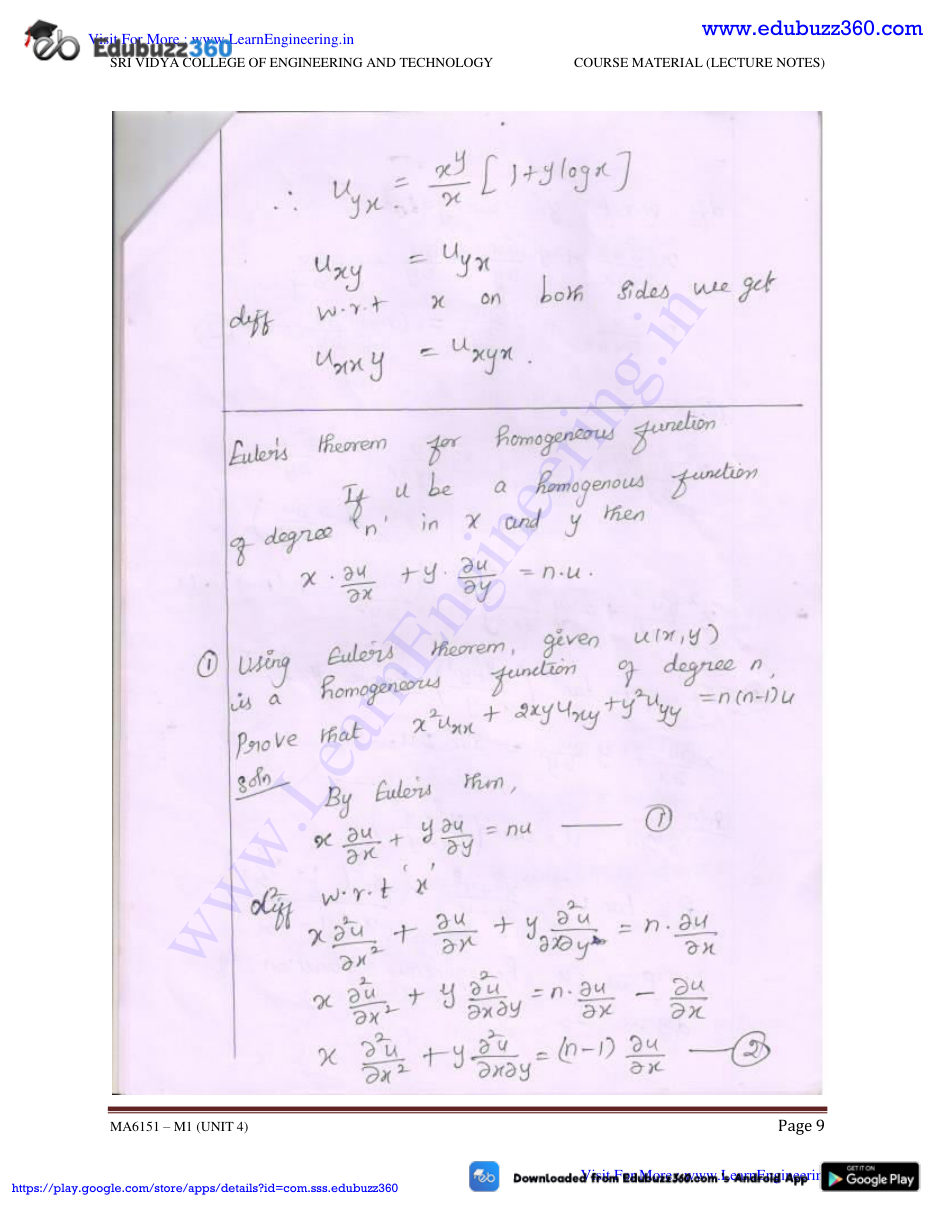 Visit For More : www.LearnEngineering.in
www.edubuzz360.com
Edubuzz360
SRI VIDYA COLLEGE OF ENGINEERING AND TECHNOLOGY COURSE MATERIAL (LECTURE NOTES)
∴ u_yx = x^y/x [1+y log x]
u_xy = u_yx
diff w.r.t x on both sides we get
u_xxy = u_xyx.
Euler's theorem for homogeneous function
If u be a homogenous function
of degree 'n' in x and y then
x · ∂u/∂x + y · ∂u/∂y = n·u.
① Using Euler's theorem, given u(x,y)
is a homogeneous function of degree n,
Prove that x²u_xx + 2xy u_xy + y²u_yy = n(n-1)u
Soln
By Euler's thm,
x ∂u/∂x + y ∂u/∂y = nu —— ①
diff w.r.t 'x'
x ∂²u/∂x² + ∂u/∂x + y ∂²u/∂x∂y = n · ∂u/∂x
x ∂²u/∂x² + y ∂²u/∂x∂y = n · ∂u/∂x − ∂u/∂x
x ∂²u/∂x² + y ∂²u/∂x∂y = (n−1) ∂u/∂x —— ②
www.LearnEngineering.in
MA6151 – M1 (UNIT 4) Page 9
https://play.google.com/store/apps/details?id=com.sss.edubuzz360
Downloaded from EduBuzz360.com 's Android App
Visit For More : www.LearnEngineerin
GET IT ON
Google Play